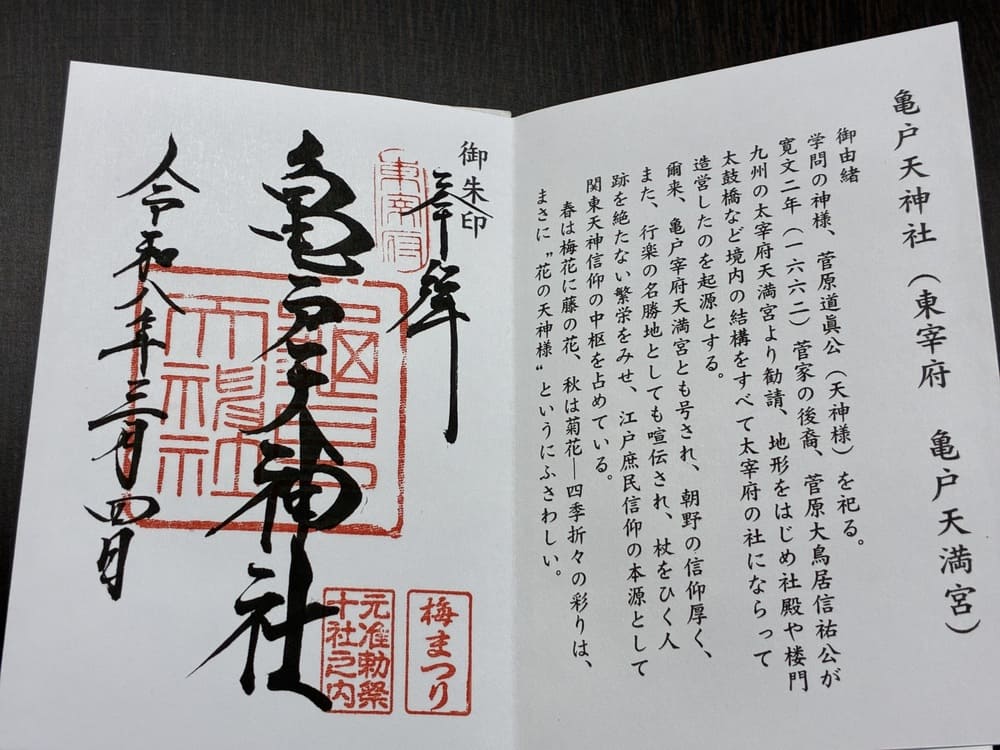 亀戸天神社（東宰府　亀戸天満宮）
御由緒
学問の神様、菅原道眞公（天神様）を祀る。
寛文二年（一六六二）菅家の後裔、菅原大鳥居信祐公が
九州の太宰府天満宮より勧請、地形をはじめ社殿や楼門
太鼓橋など境内の結構をすべて太宰府の社にならって
造営したのを起源とする。
爾来、亀戸宰府天満宮とも号され、朝野の信仰厚く、
また、行楽の名勝地としても喧伝され、杖をひく人
跡を絶たない繁栄をみせ、江戸庶民信仰の本源として
関東天神信仰の中枢を占めている。
春は梅花に藤の花、秋は菊花―四季折々の彩りは、
まさに〝花の天神様〟というにふさわしい。
御朱印
奉拝
東宰府
亀戸天神社
亀戸
天神社
令和八年三月四日
梅まつり
元准勅祭
十社之内